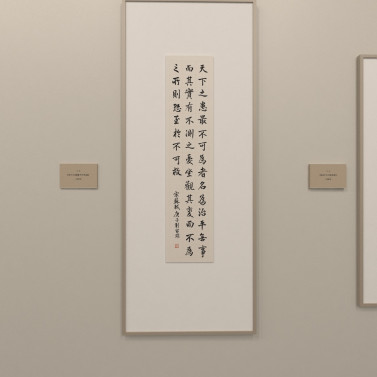 天下之患最不可為者名為治平無事
而其實有不測之憂坐觀其變而不為
之所則恐至於不可救